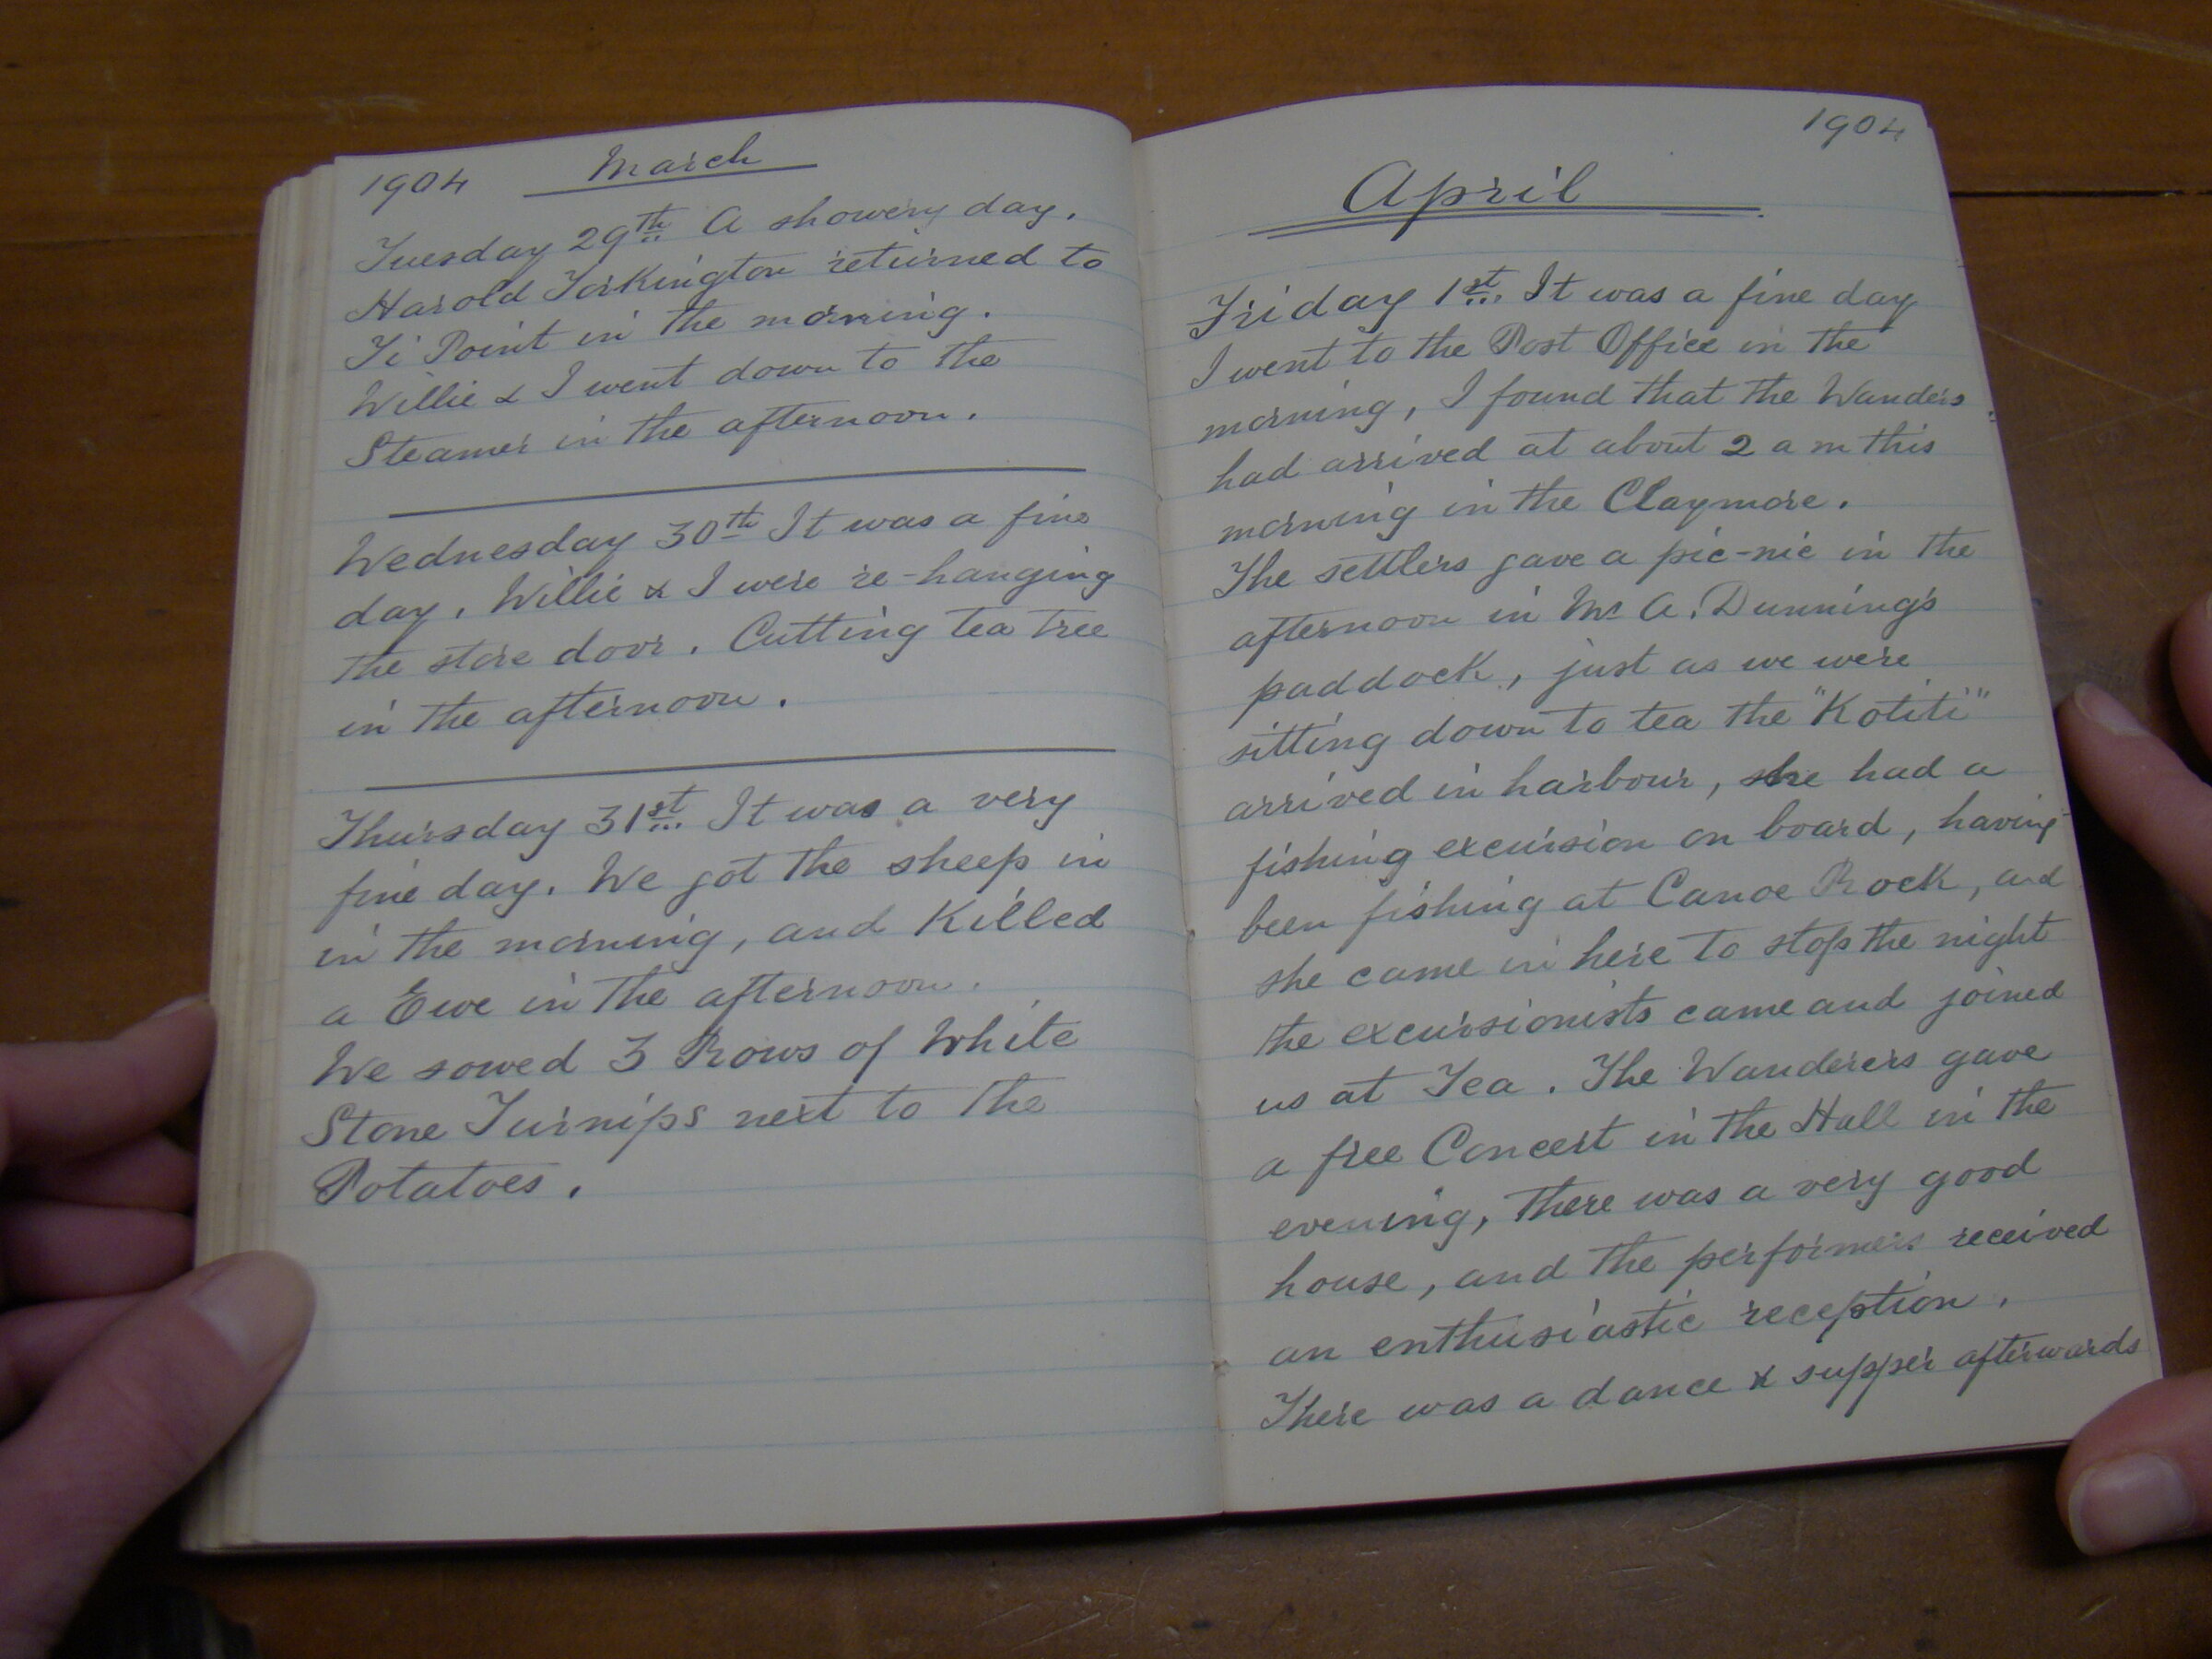 1904 March
Tuesday 29th A showery day.
Harold Torkington returned to
Ti Point in the morning.
Willie & I went down to the
Steamer in the afternoon.
Wednesday 30th It was a fine
day. Willie & I were re-hanging
the store door. Cutting tea tree
in the afternoon.
Thursday 31st It was a very
fine day. We got the sheep in
in the morning, and Killed
a Ewe in the afternoon.
We sowed 3 Rows of White
Stone Turnips next to the
Potatoes.
1904
April
Friday 1st. It was a fine day
I went to the Post Office in the
morning, I found that the Wanders
had arrived at about 2 a m this
morning in the Claymore.
The settlers gave a pic-nic in the
afternoon in Mr A. Dunning's
paddock, just as we were
sitting down to tea the "Kotiti"
arrived in harbour, she had a
fishing excursion on board, having
been fishing at Canoe Rock, and
she came in here to stop the night
the excursionists came and joined
us at Tea. The Wanderers gave
a free Concert in the Hall in the
evening, There was a very good
house, and the performers received
an enthusiastic reception.
There was a dance & supper afterwards